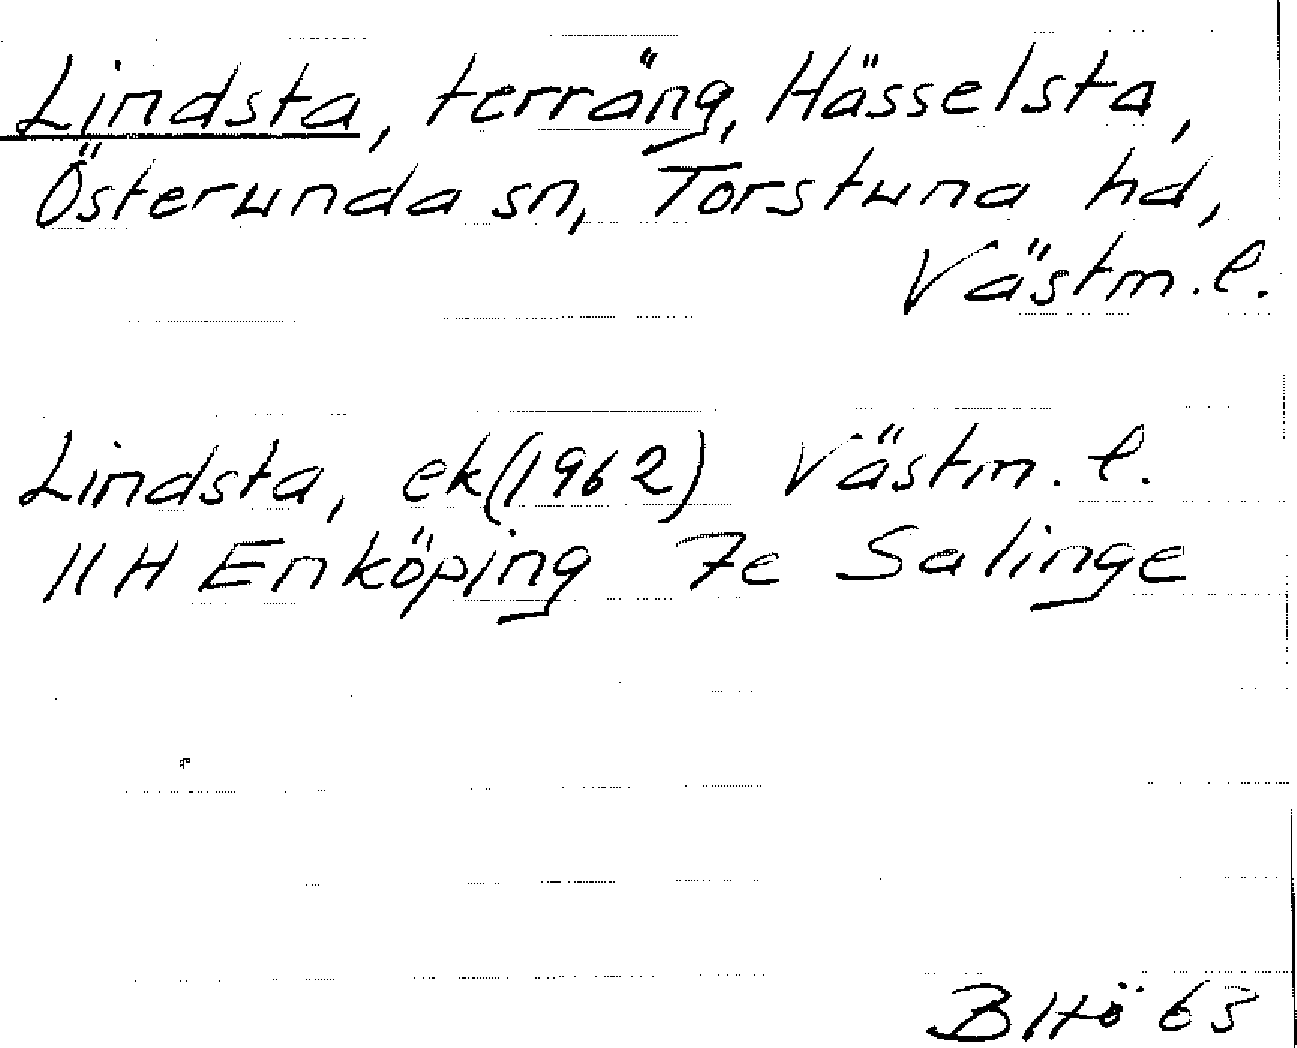 Lindsta, terräng, Hässelsta,
Österunda sn, Torstuna hd,
Västm. l.
Lindsta, ek (1962) Västm. l.
11H Enköping 7e Salinge
BHö 63